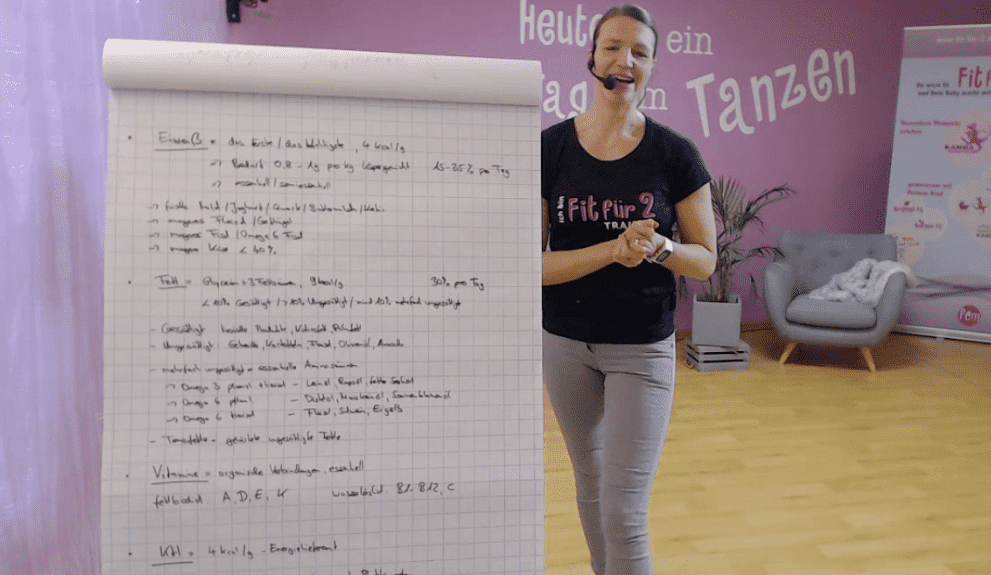 Heute ein
Tag zum Tanzen
Ich bin
Fit für 2
TRAI
Fit f
Du wirst fit
und Dein Baby macht mit
Besondere Momente
erleben
KANGA
gemeinsam mit
Deinem Kind
Fem
Eiweiß = das Erste / das Wichtigste, 4 kcal/g
→ Bedarf 0,8 - 1g pro kg Körpergewicht 15-25% pro Tag
→ essentiell / semiessentiell
→ Joghurt / Quark / Buttermilch /
→ mageres Fleisch / Geflügel
→ magerer Fisch / Omega 6 Fisch
→ magerer Käse < 40%
Fett = Glycerin + 3 Fettsäuren, 9 kcal/g 30% pro Tag
< 10% Gesättigt / > 10% Ungesättigt / rund 10% mehrfach ungesättigt
- Gesättigt tierische Produkte, Kokosfett, Palmfett
- Ungesättigt Olivenöl, Avocado
- mehrfach ungesättigt = essentielle Aminosäuren
→ Omega 3 pflanzl + tierisch - Leinöl, Rapsöl, fetter Seefisch
→ Omega 6 pflanzl - Distelöl, Maiskeimöl, Sonnenblumenöl
→ Omega 6 tierisch - Fleisch, Schwein, Eigelb
- Transfette - gehärtete ungesättigte Fette
Vitamine = organische Verbindungen, essentiell
fettlöslich A, D, E, K wasserlöslich B1-B12, C
KH = 4 kcal/g - Energielieferant